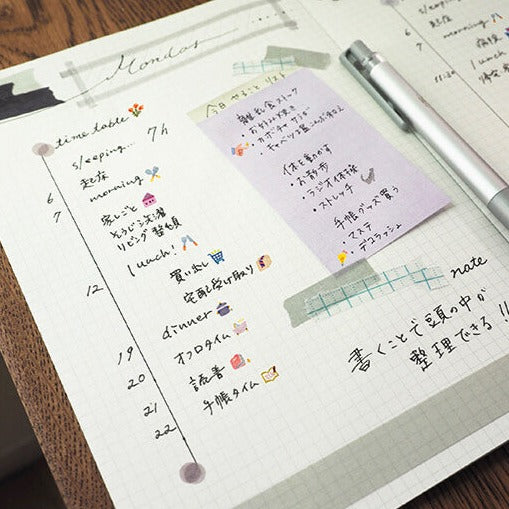 Monday
time table
sleeping... 7h
起床
6
morning
7
家しごと
そうじ・洗濯
リビング整頓
lunch!
買い出し
12
宅配受け取り
dinner
オフロタイム
19
読書
20
手帳タイム
21
22
今日やることリスト
離乳食ストック
・お好み焼き
・キャベツ
体を動かす
・お散歩
・ラジオ体操
・ストレッチ
手帳グッズ買う
・マステ
・デコラッシュ
note
書くことで頭の中が
整理できる!!
起床
6
morning
7
lunch